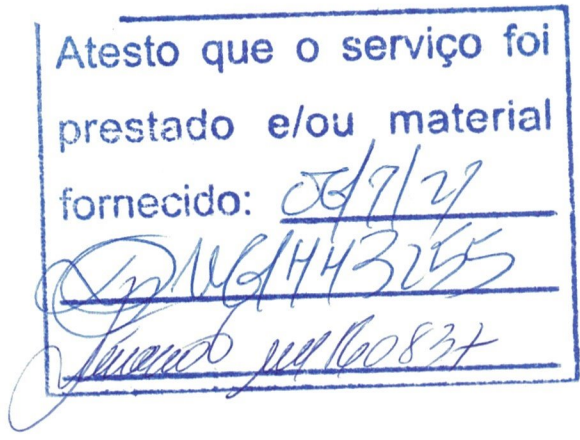 Atesto que o serviço foi
prestado e/ou material
fornecido: 06/7/21
443255